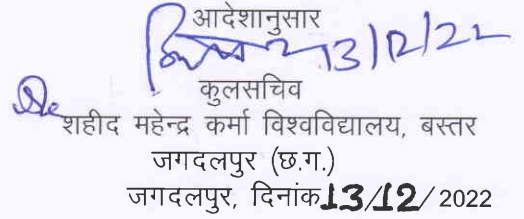 आदेशानुसार
13/12/22
कुलसचिव
शहीद महेन्द्र कर्मा विश्वविद्यालय, बस्तर
जगदलपुर (छ.ग.)
जगदलपुर, दिनांक 13/12/ 2022